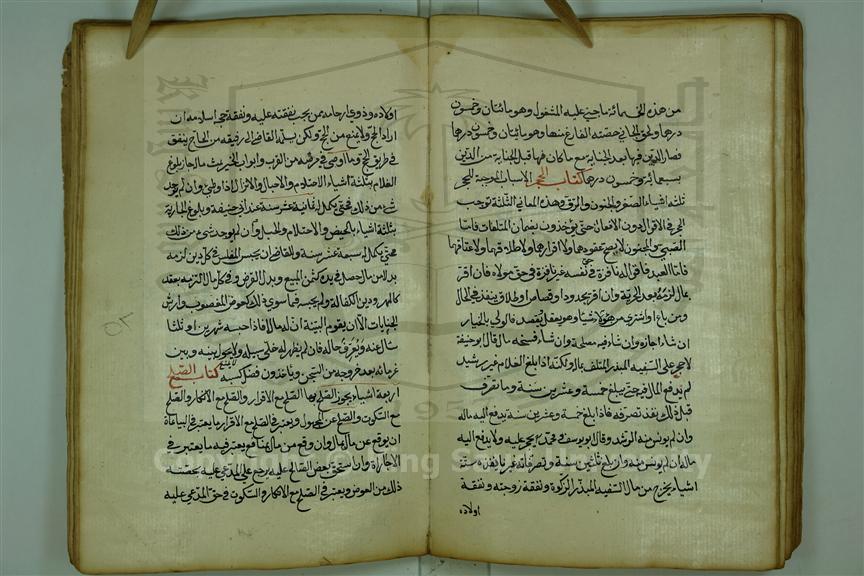 من هذه الخمسمائة ماجني عليه المشغول وهو مائتان وخمسون
درهما ولمولى الجاني حصته الفارغ منها وهو مائتان وخمسون درهما
فصار الدين فيها بعد الجناية مع ما كان فيها قبل الجناية من الدين
بسبعمائة وخمسون درهما كتاب الحجر الاسباب الموجبة للحجر
ثلثة اشياء الصغر والجنون والرق وهذه المعاني الثلثة توجب
الحجر في الاقوال دون الافعال حتى يؤخذون بضمان المتلفات فاما
الصبي والمجنون لا يصح عقودهما ولا اقرارهما ولا طلاقهما ولا عتاقهما
فاما العبد فاقواله نافذة في حق نفسه غير نافذة في حق مولاه فان اقر
بمال لزمه بعد الحرية وان اقر بحدود او قصاص او طلاق ينفذ في الحال
ومن باع او اشترى من هؤلاء شيأ وهو يعقل يقصد فالولي بالخيار
ان شاء اجازه وان شاء فيه مصلحة وان شاء فسخه مال قال ابو حنيفة
لا حجر على السفيه المبذر المتلف بماله ولكنه اذا بلغ الغلام غير رشيد
لم يدفع المال فيه حتى يبلغ خمسة وعشرين سنة وما تصرف
قبل ذلك ينفذ تصرفه فاذا بلغ خمسة وعشرين سنة يدفع اليه ماله
وان لم يونس منه الرشد وقال ابو يوسف ومحمد يحجر عليه ولا يدفع اليه
ماله ان لم يونس منه وان بلغ ثلثين سنة وتصرفاته غير نافذة ستة
اشياء يخرج من مال السفيه المبذر الزكوة ونفقة زوجته ونفقة
اولاده
اولاده وذوي ارحامه من يجب نفقته عليه ونفقة حجة اسلامه ان
اراد الحج ولا يمنع من الحج ولكن يسلم القاضي الى رفيقه من الحاج ينفق
في طريق الحج وما اوصى في مرضه من القرب وابواب الخير من ثلث ماله جاز بلوغ
الغلام بثلثة اشياء الاحتلام والاحبال والانزال اذا وطئ وان لم يوجد
شئ من ذلك فحتى يكمل له ثمانية عشر سنة عند ابي حنيفة وبلوغ الجارية
بثلثة اشياء بالحيض والاحتلام والحبل وان لم يوجد شئ من ذلك
فحتى يكمل له سبعة عشر سنة وللقاضي ان يحبس المفلس في كل دين لزمه
بدلا من مال حصل في يده كثمن المبيع وبدل القرض وفي كل مال التزمه بعقد
كالمهر ودين الكفالة ولم يحبسه فيما سوى ذلك كعوض المغصوب وارش
الجنايات الا ان يقوم البينة ان له مال فاذا حبسه شهرين او ثلثا
سال عنه وتعرف حاله فان لم يظهر له خلى سبيله ولا يحول بينه وبين
غرمائه بعد خروجه من السجن وياخذون فضل كسبه كتاب الصلح
اربعة اشياء يجوز الصلح بها الصلح مع الاقرار والصلح مع الانكار والصلح
مع السكوت والصلح عن المجهول ويعتبر في الصلح مع الاقرار ما يعتبر في البياعات
ان يوقع عن مال بمال وان وقع من مال بمنافع يعتبر فيه ما يعتبر في
الاجارات وان استحق بعض الصالح عليه رجع على المدعي عليه بحصته
ذلك من العوض ويعتبر في الصلح مع الانكار والسكوت في حق المدعي عليه
Copyright © King Saud University